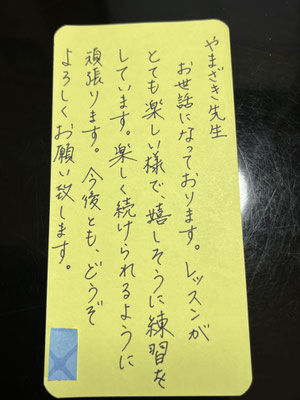 やまざき先生
お世話になっております。レッスンが
とても楽しい様で、嬉しそうに練習を
しています。楽しく続けられるように
頑張ります。今後とも、どうぞ
よろしくお願い致します。